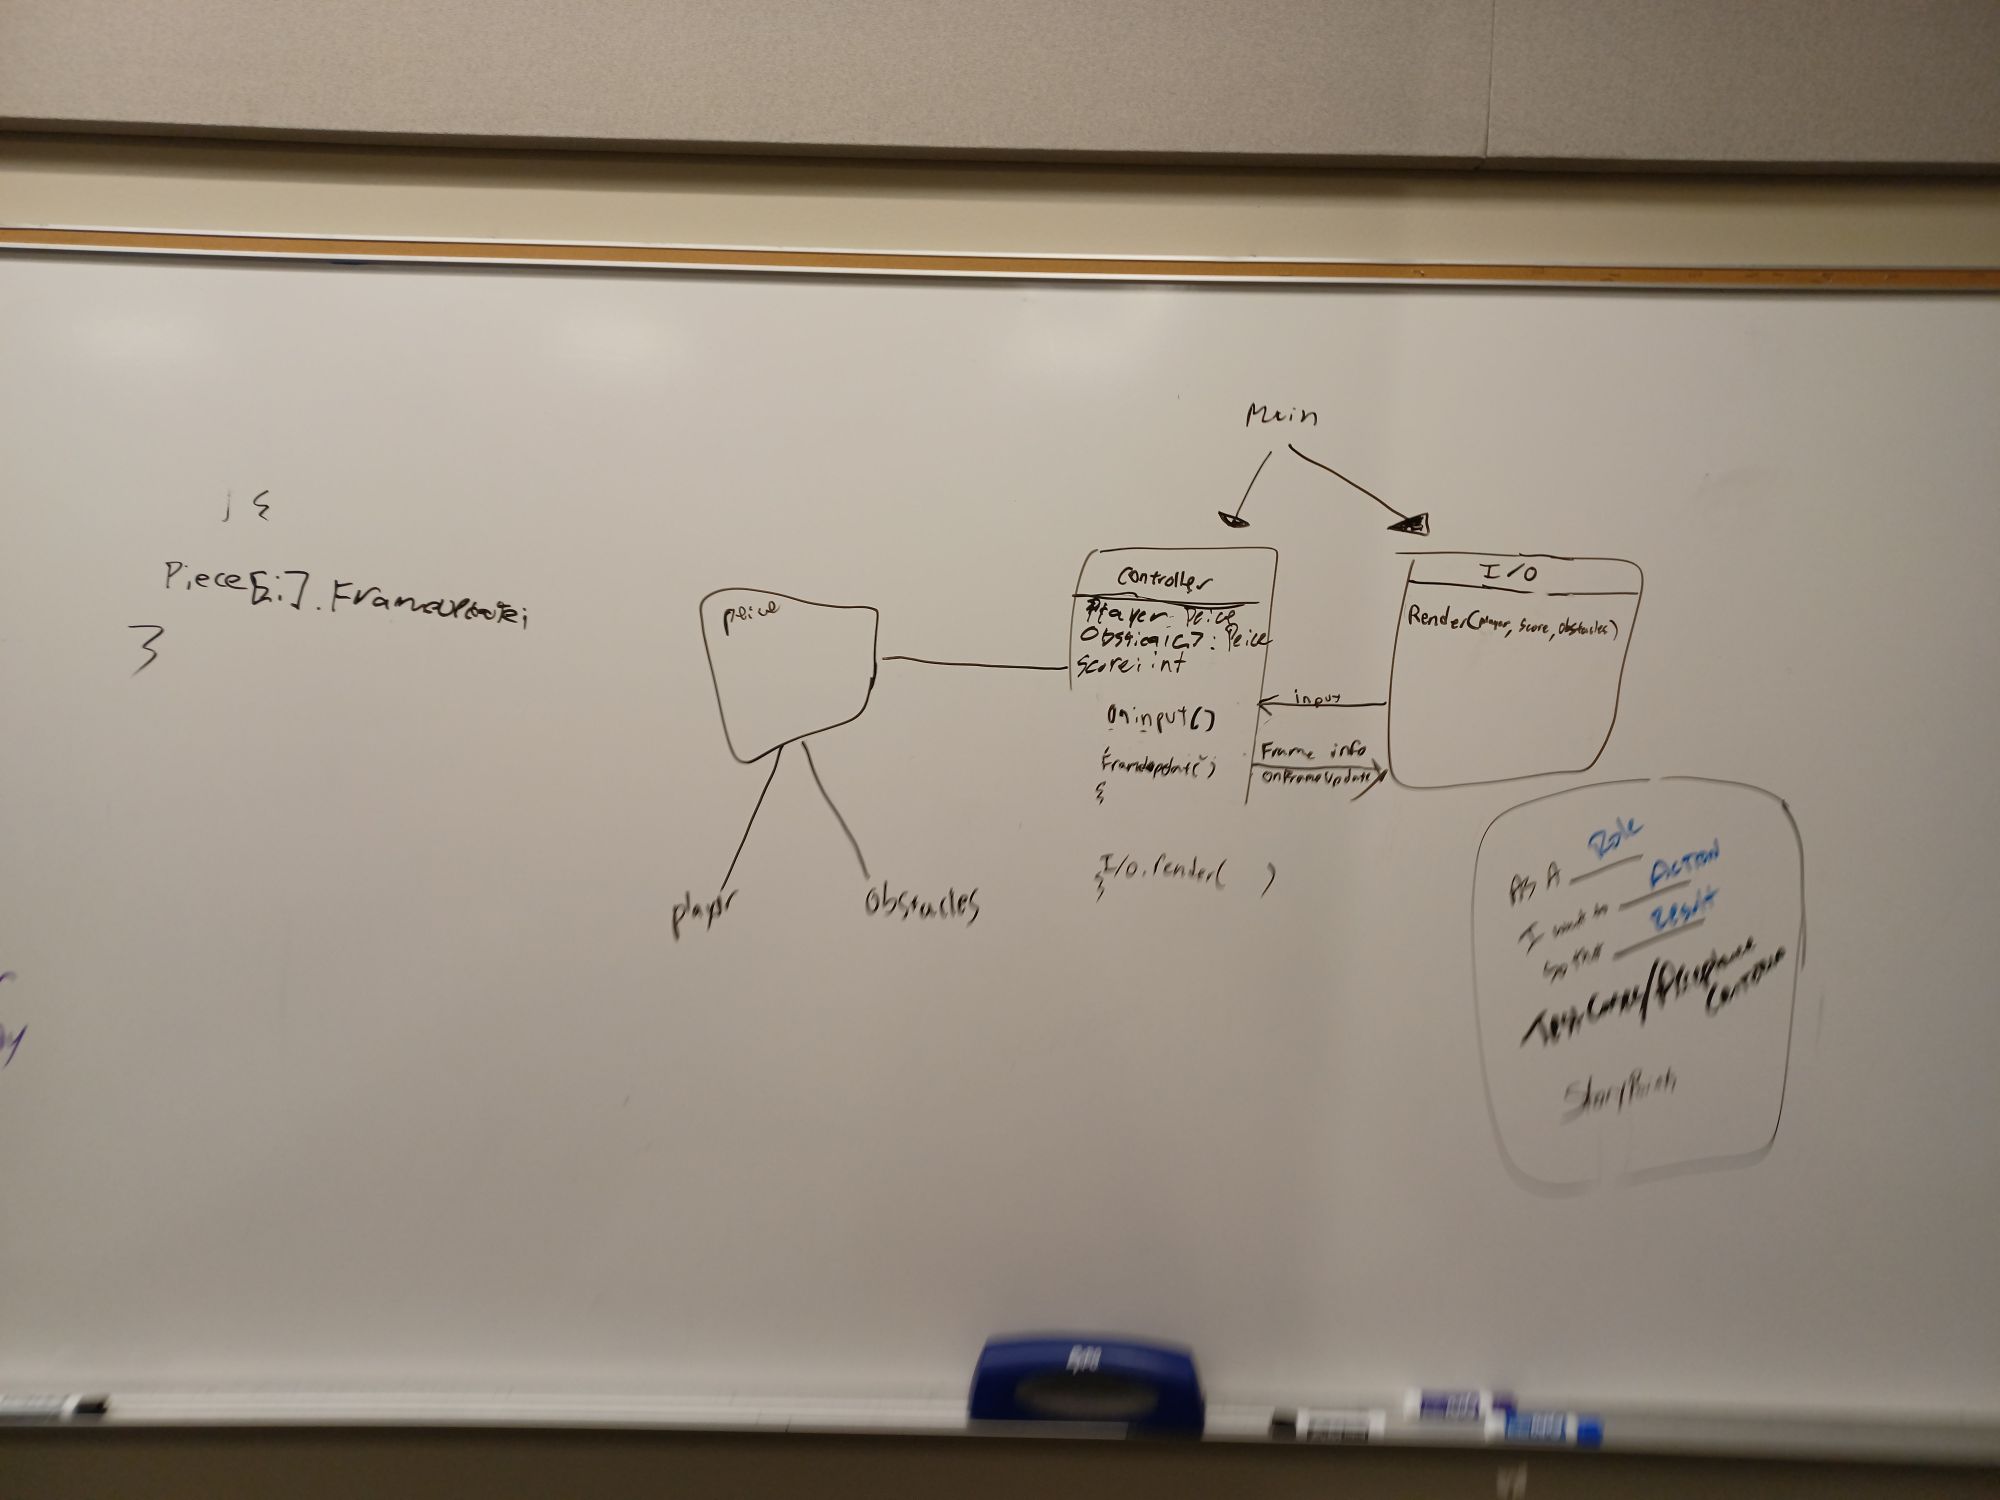 Main
j {
Piece[i].FrameUpdate;
}
peice
player
obstacles
Controller
Player: Peice
Obstical[]: Peice
Score: int
Oninput()
Frameupdate()
{
I/O.render( )
}
input
Frame info
OnFrameUpdate
I/O
Render(player, score, obstacles)
As A Role
I want to ACTION
So that result
Test Cases/Acceptance
Story Points